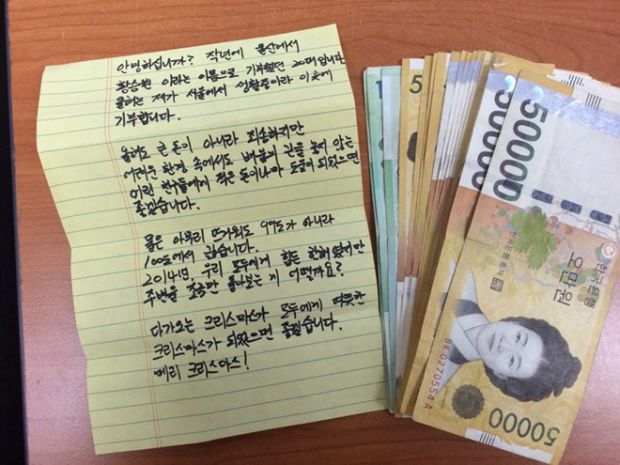 안녕하십니까? 작년에 울산에서
황승원 이라는 이름으로 기부했던 20대입니다
올해는 제가 서울에서 생활중이라 이곳에
기부합니다.
올해도 큰 돈이 아니라 죄송하지만
어려운 환경 속에서도 배움의 끈을 놓지 않는
어린 친구들에게 적은 돈이나마 도움이 되었으면
좋겠습니다.
물은 아무리 뜨거워도 99도가 아니라
100도에서 끓습니다.
2014년, 우리 모두에게 힘든 한해였지만
주변을 조금만 돌아보는 게 어떨까요?
다가오는 크리스마스가 모두에게 따뜻한
크리스마스가 되었으면 좋겠습니다.
메리 크리스마스!
1
5
50000
50000
50000
한국은행
오만원
한국은행 총재
BK 0270554 A
50000